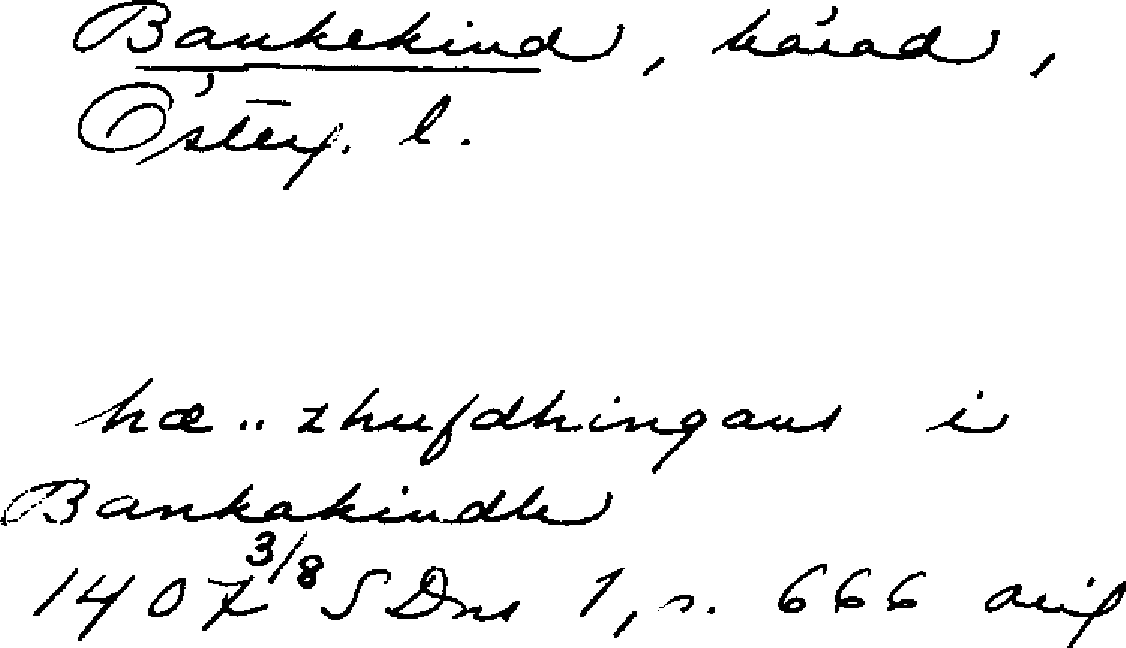 Bankekind, härad,
Österg. l.
hæ..zhufdhingans i
Bankakindh
1407 3/8 SDns 1, s. 666 orig